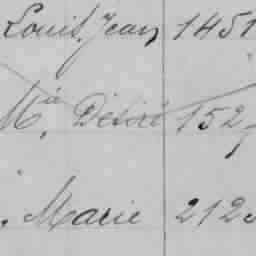 Louis Jean 1451
Mia Désiré 152
. Marie 212